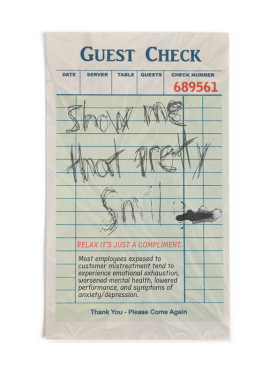 GUEST CHECK
DATE SERVER TABLE GUESTS CHECK NUMBER
689561
Show me
that pretty
Smil
RELAX IT'S JUST A COMPLIMENT.
Most employees exposed to
customer mistreatment tend to
experience emotional exhaustion,
worsened mental health, lowered
performance, and symptoms of
anxiety/depression.
Thank You - Please Come Again